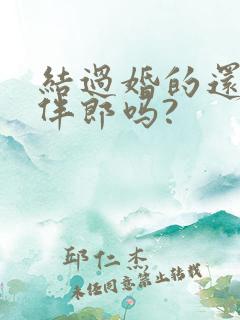 結過婚的還
伴郎吗?
邱仁杰
未经同意禁止转载